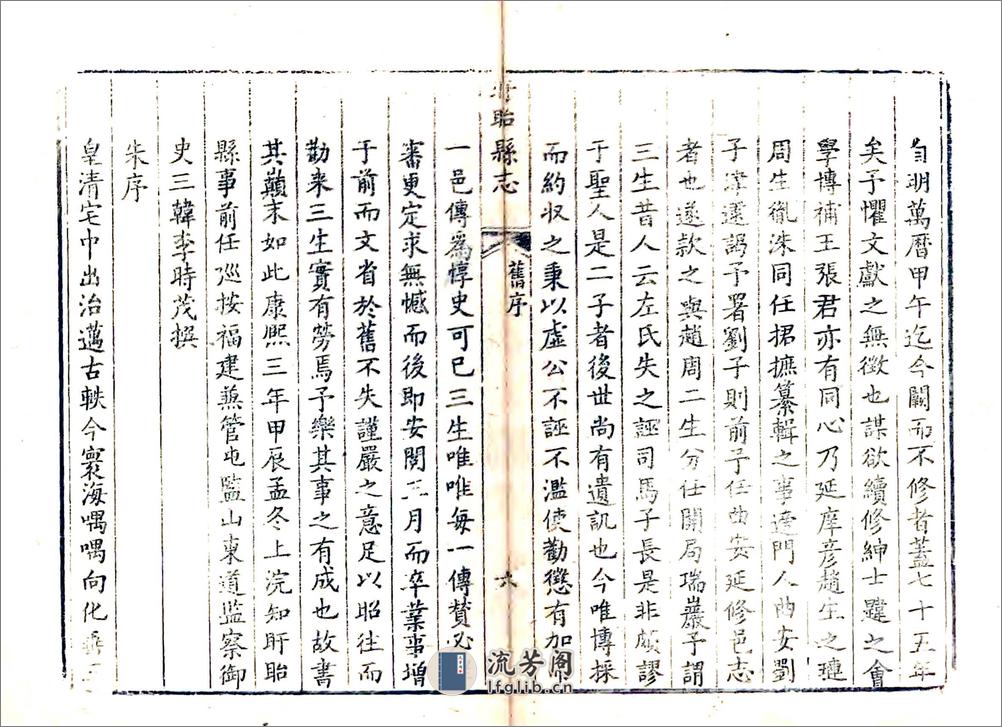 自明萬曆甲午迄今闕而不修者蓋七十五年
矣予懼文獻之無徵也謀欲續修紳士韙之會
學博補王張君亦有同心乃延庠彥趙生之璉
周生胤洙同任捃摭纂輯之事適門人曲安劉
子建遠謁予署劉子則前予任曲安延修邑志
者也遂款之與趙周二生分任開局瑞巖予謂
三生昔人云左氏失之誣司馬子長是非頗謬
于聖人是二子者後世尚有遺訊也今唯博採
而約収之秉以虛公不誣不濫使勸懲有加
盱眙縣志
舊序
一邑傳為惇史可已三生唯唯每一傳贊必
審更定求無憾而後即安閱三月而卒業事增
于前而文省於舊不失謹嚴之意足以昭往而
勸来三生實有勞焉予樂其事之有成也故書
其巔末如此康熙三年甲辰孟冬上浣知盱眙
縣事前任巡按福建兼管屯監山東道監察御
史三韓李時茂撰
朱序
皇清宅中出治邁古軼今寰海喁喁向化
流芳阁
lfglib.cn